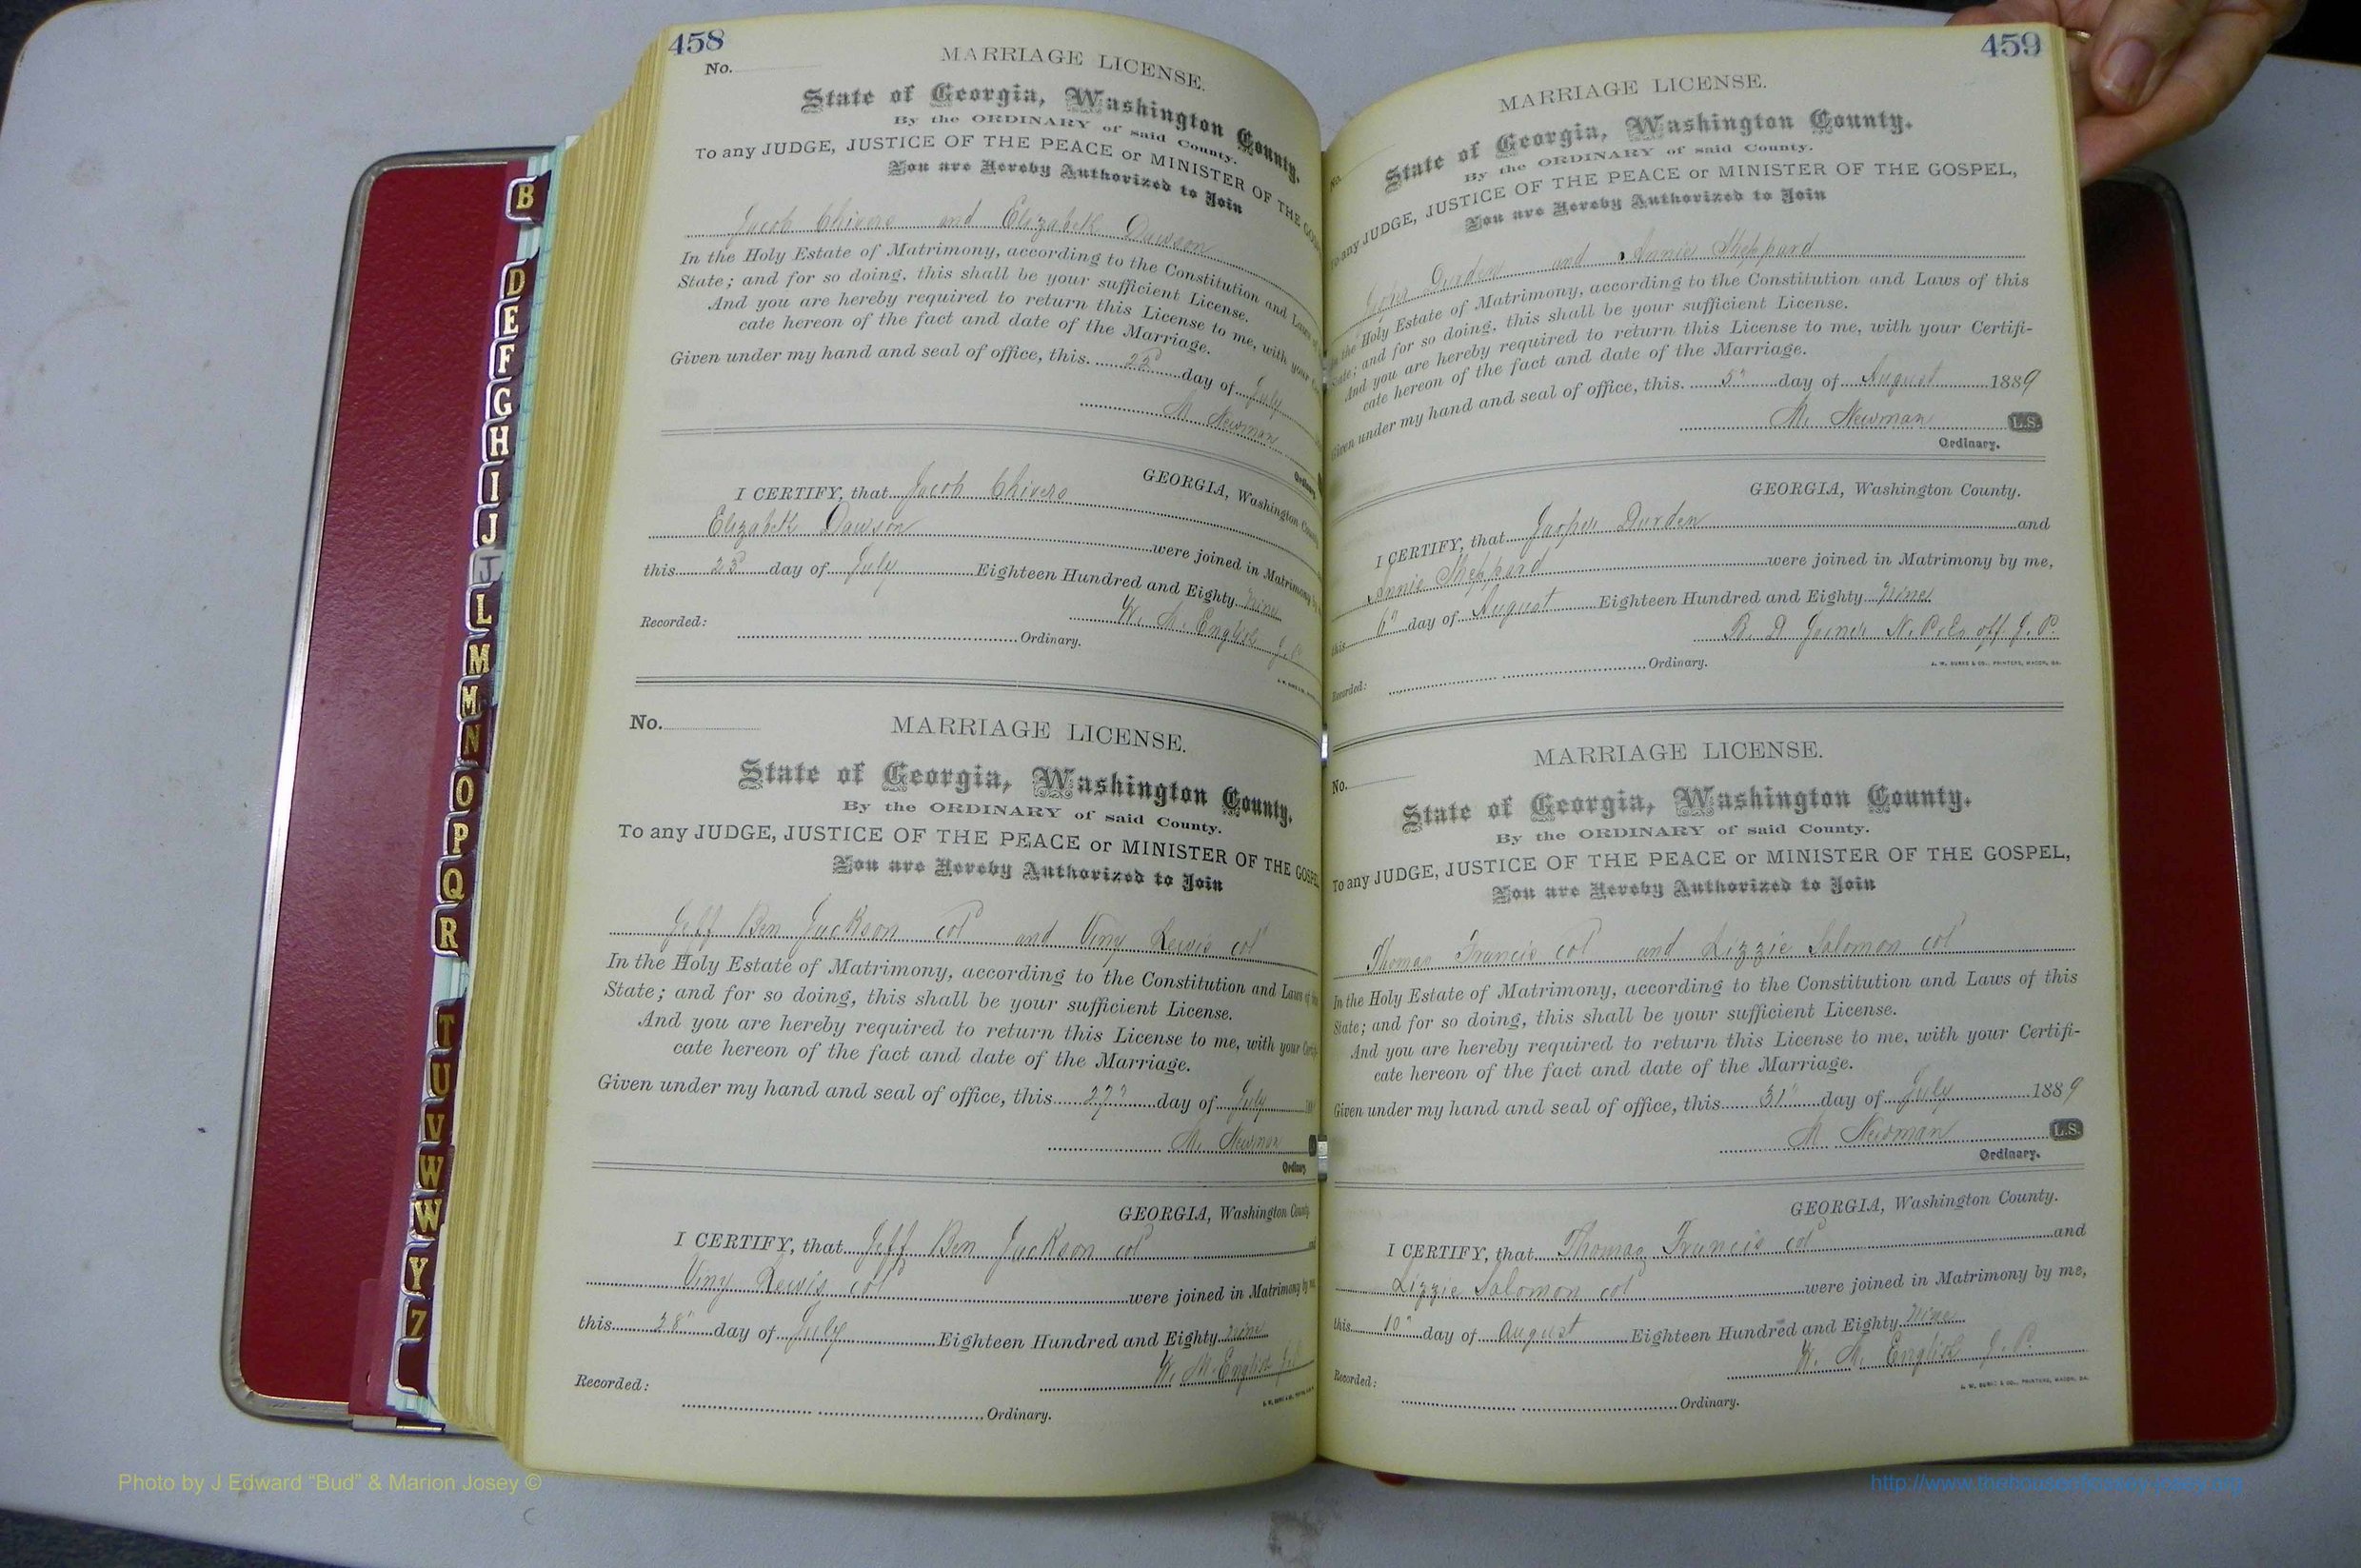 458
No.
MARRIAGE LICENSE.
State of Georgia, Washington County.
By the ORDINARY of said County.
To any JUDGE, JUSTICE OF THE PEACE or MINISTER OF THE
You are Hereby Authorized to Join
Jacob Chivers and Elizabeth Dawson
In the Holy Estate of Matrimony, according to the Constitution and Laws
State; and for so doing, this shall be your sufficient License.
And you are hereby required to return this License to me, with your
cate hereon of the fact and date of the Marriage.
Given under my hand and seal of office, this 23d day of July
M. Newman
Ordinary.
GEORGIA, Washington
I CERTIFY, that Jacob Chivers
Elizabeth Dawson were joined in Matrimony
this 23d day of July Eighteen Hundred and Eighty nine
W. M. English J.P.
Recorded: Ordinary.
No.
MARRIAGE LICENSE.
State of Georgia, Washington County.
By the ORDINARY of said County.
To any JUDGE, JUSTICE OF THE PEACE or MINISTER OF THE GOSPEL
You are Hereby Authorized to Join
Jeff Ben Jackson col and Viny Lewis col
In the Holy Estate of Matrimony, according to the Constitution and Laws of
State; and for so doing, this shall be your sufficient License.
And you are hereby required to return this License to me, with your Certifi-
cate hereon of the fact and date of the Marriage.
Given under my hand and seal of office, this 27" day of July
M. Newman
Ordinary
GEORGIA, Washington County
I CERTIFY, that Jeff Ben Jackson col and
Viny Lewis col were joined in Matrimony by me
this 28" day of July Eighteen Hundred and Eighty nine
W. M. English J.P.
Recorded: Ordinary.
459
No.
MARRIAGE LICENSE.
State of Georgia, Washington County.
By the ORDINARY of said County.
To any JUDGE, JUSTICE OF THE PEACE or MINISTER OF THE GOSPEL,
You are Hereby Authorized to Join
Jasper Durden and Annie Sheppard
In the Holy Estate of Matrimony, according to the Constitution and Laws of this
State; and for so doing, this shall be your sufficient License.
And you are hereby required to return this License to me, with your Certifi-
cate hereon of the fact and date of the Marriage.
Given under my hand and seal of office, this 5" day of August 1889
M. Newman L.S.
Ordinary.
GEORGIA, Washington County.
I CERTIFY, that Jasper Durden and
Annie Sheppard were joined in Matrimony by me,
this 6" day of August Eighteen Hundred and Eighty nine
B. D. Joiner N. P. off. J. P.
Recorded: Ordinary.
J. W. BURKE & CO., PRINTERS, MACON, GA.
No.
MARRIAGE LICENSE.
State of Georgia, Washington County.
By the ORDINARY of said County.
To any JUDGE, JUSTICE OF THE PEACE or MINISTER OF THE GOSPEL,
You are Hereby Authorized to Join
Thomas Francis col and Lizzie Salomon col
In the Holy Estate of Matrimony, according to the Constitution and Laws of this
State; and for so doing, this shall be your sufficient License.
And you are hereby required to return this License to me, with your Certifi-
cate hereon of the fact and date of the Marriage.
Given under my hand and seal of office, this 31" day of July 1889
M Newman L.S.
Ordinary.
GEORGIA, Washington County.
I CERTIFY, that Thomas Francis col and
Lizzie Salomon col were joined in Matrimony by me,
this 10" day of August Eighteen Hundred and Eighty nine
W. M. English J. P.
Recorded: Ordinary.
J. W. BURKE & CO., PRINTERS, MACON, GA.
B
D
E
F
G
H
I
J
J
L
M
M
N
O
P
Q
R
T
U
V
W
W
Y
Z
Photo by J Edward “Bud” & Marion Josey ©